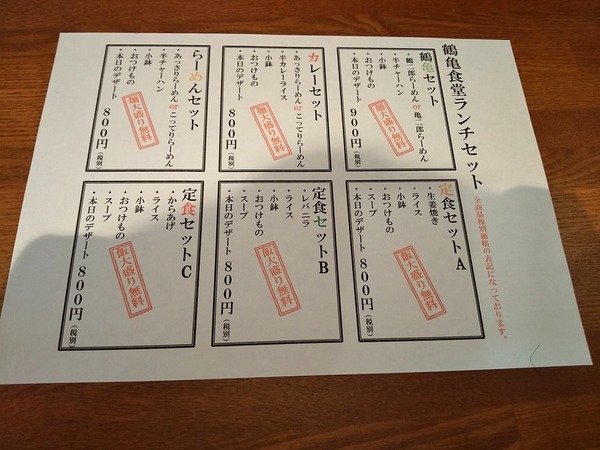 鶴亀食堂ランチセット
全商品税別価格の表記になっております。
鶴亀セット
・鶴二郎らーめんor亀二郎らーめん
・半チャーハン
・小鉢
・おつけもの
・本日のデザート
900円(税別)
麺大盛り無料
カレーセット
・あっさりらーめんorこってりらーめん
・半カレーライス
・小鉢
・おつけもの
・本日のデザート
800円(税別)
麺大盛り無料
らーめんセット
・あっさりらーめんorこってりらーめん
・半チャーハン
・小鉢
・おつけもの
・本日のデザート
800円(税別)
麺大盛り無料
定食セットA
・生姜焼き
・ライス
・小鉢
・おつけもの
・スープ
・本日のデザート
800円(税別)
飯大盛り無料
定食セットB
・レバニラ
・ライス
・小鉢
・おつけもの
・スープ
・本日のデザート
800円(税別)
飯大盛り無料
定食セットC
・からあげ
・ライス
・小鉢
・おつけもの
・スープ
・本日のデザート
800円(税別)
飯大盛り無料